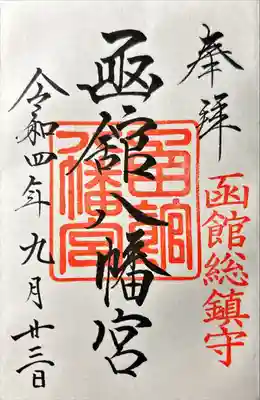 奉拝
函館総鎮守
函館八幡宮
函館八幡宮
令和四年九月廿三日